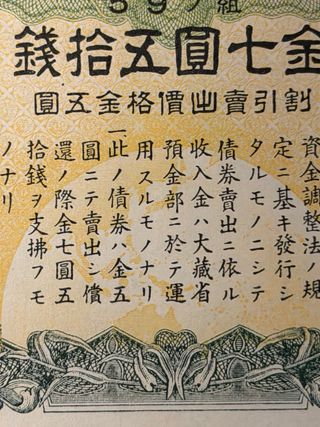 組ノ59
金七圓五拾錢
割引賣出價格金五圓
資金調整法ノ規
定ニ基キ發行シ
タルモノニシテ
債券賣出ニ依ル
收入金ハ大藏省
預金部ニ於テ運
用スルモノナリ
一、此ノ債券ハ金五
圓ニテ賣出シ償
還ノ際金七圓五
拾錢ヲ支拂フモ
ノナリ